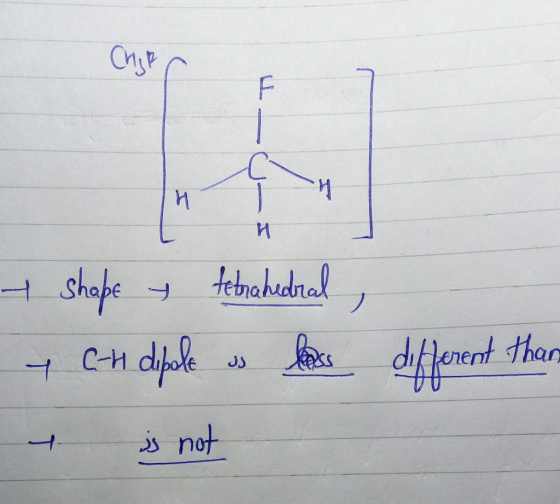 CH3F
F
C
H H
H
→ shape → tetrahedral,
→ C-H dipole is less different than
→ is not